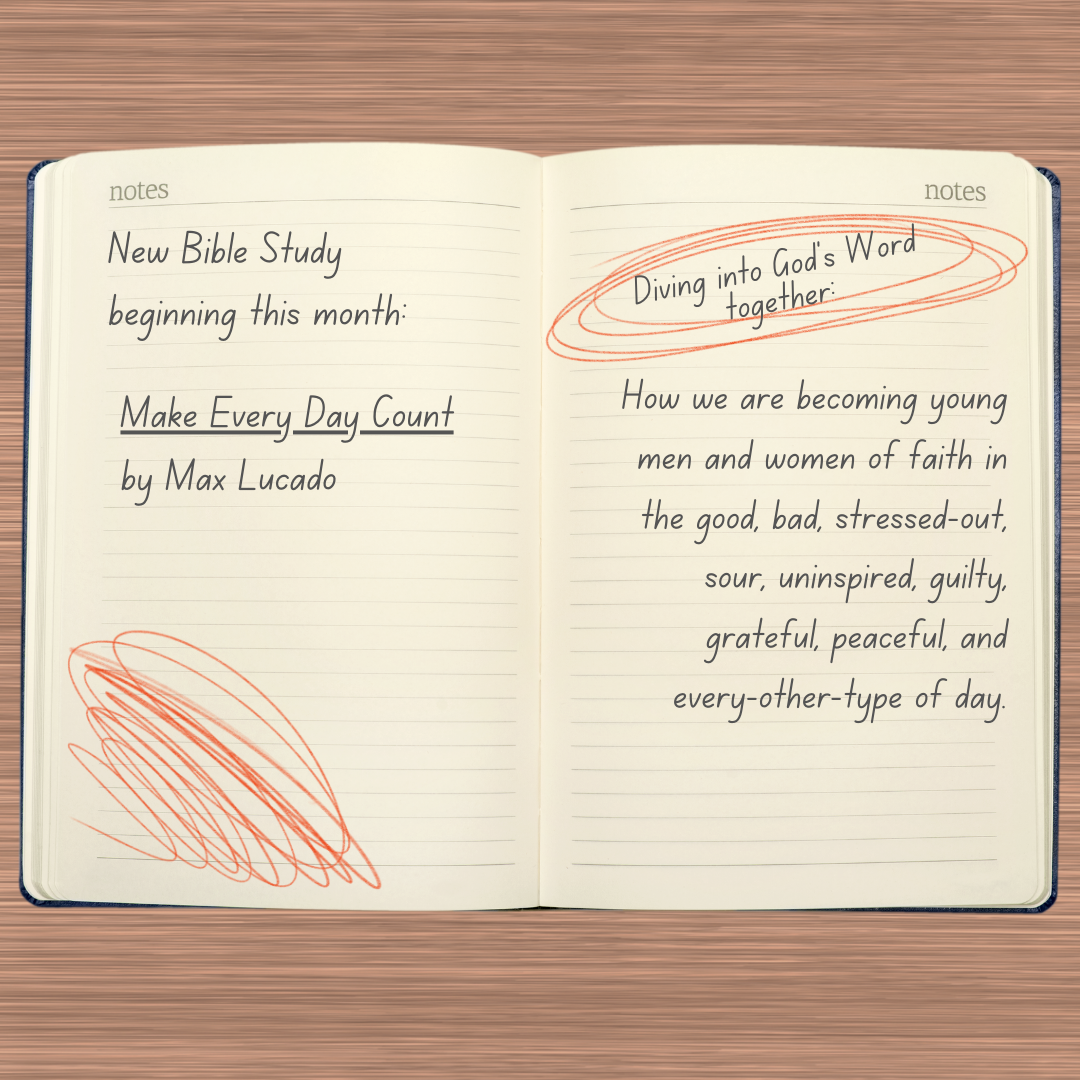 notes
New Bible Study
beginning this month:
Make Every Day Count
by Max Lucado
notes
Diving into God's Word
together:
How we are becoming young
men and women of faith in
the good, bad, stressed-out,
sour, uninspired, guilty,
grateful, peaceful, and
every-other-type of day.